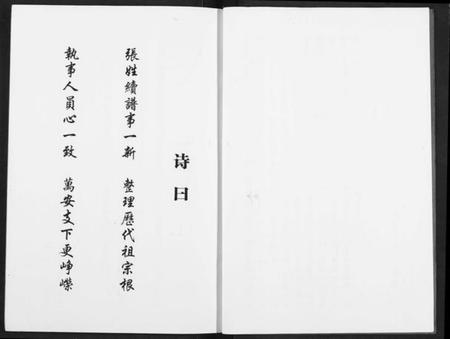 诗曰
張姓續譜事一新　整理歷代祖宗根
執事人員心一致　萬安支下更峥嶸